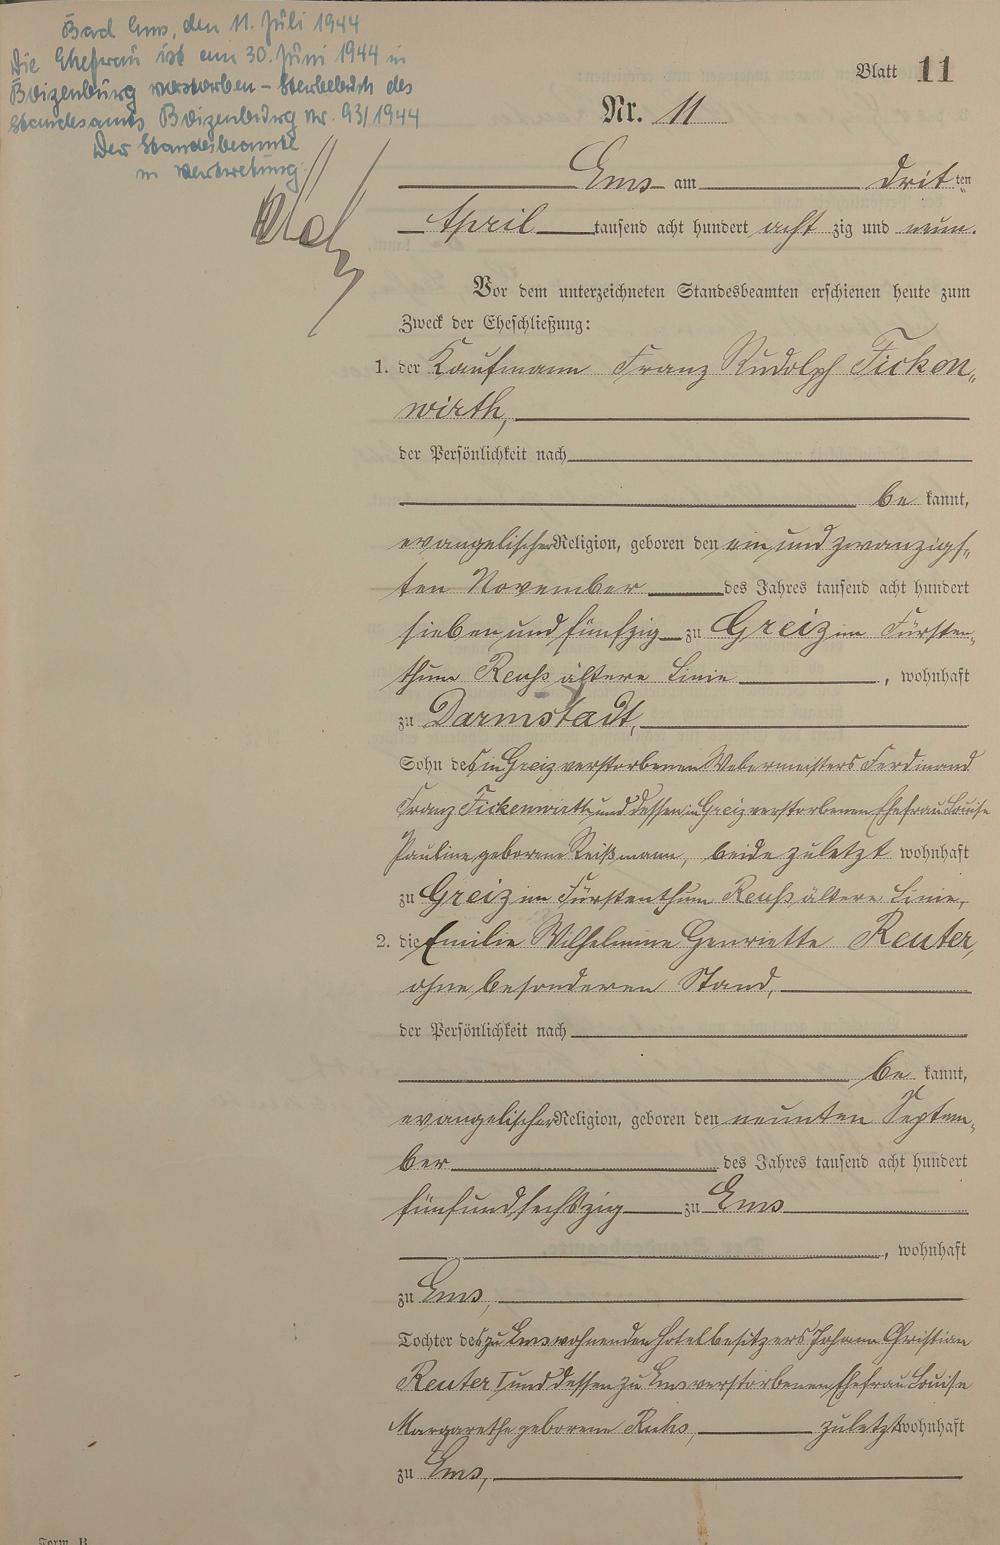 Bad Ems, den 11. Juli 1944
Die Ehefrau ist am 30. Juni 1944 in
Boizenburg verstorben – Sterbebuch des
Standesamts Boizenburg Nr. 93/1944
Der Standesbeamte
in Vertretung:
Blatt 11
Nr. 11
Ems am dritten
April tausend acht hundert achtzig und neun.
Vor dem unterzeichneten Standesbeamten erschienen heute zum
Zweck der Eheschließung:
1. der Kaufmann Franz Rudolph Ficken„
wirth,
der Persönlichkeit nach
be kannt,
evangelischer Religion, geboren den ein und zwanzigs„
ten November des Jahres tausend acht hundert
sieben und fünfzig zu Greiz im Fürsten„
thum Reuß ältere Linie, wohnhaft
zu Darmstadt,
Sohn des in Greiz verstorbenen Webermeisters Ferdinand
Franz Fickenwirth und dessen in Greiz verstorbenen Ehefrau Louise
Pauline geborene Reißmann, beide zuletzt wohnhaft
zu Greiz im Fürstenthum Reuß ältere Linie,
2. die Emilie Wilhelmine Henriette Reuter,
ohne besonderen Stand,
der Persönlichkeit nach
be kannt,
evangelischer Religion, geboren den neunten Septem„
ber des Jahres tausend acht hundert
fünfundsechszig zu Ems
, wohnhaft
zu Ems,
Tochter des zu Ems wohnenden Hotelbesitzers Johann Christian
Reuter I und dessen zu Ems verstorbenen Ehefrau Louise
Margarethe geborene zuletzt wohnhaft
zu Ems,
Form. B.